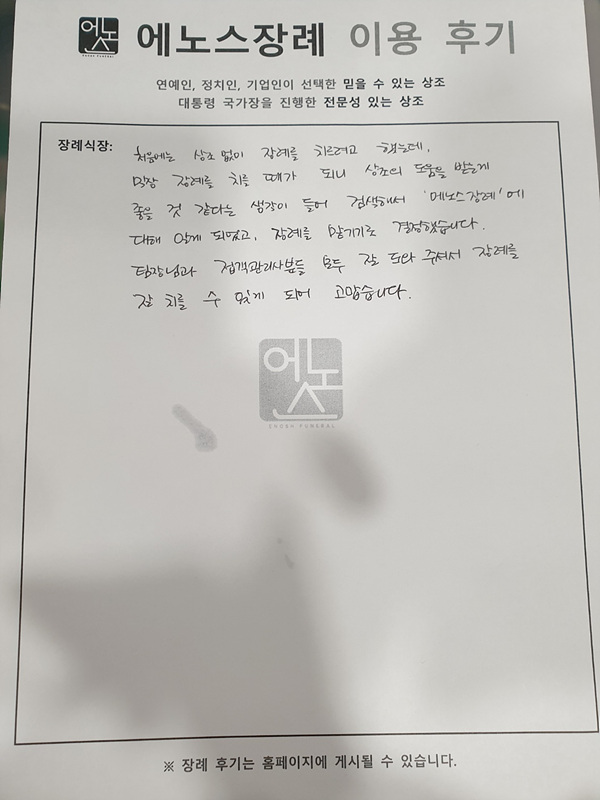 에노스 ENOSH FUNERAL 에노스장례 이용 후기
연예인, 정치인, 기업인이 선택한 믿을 수 있는 상조
대통령 국가장을 진행한 전문성 있는 상조
장례식장:
처음에는 상조 없이 장례를 치르려고 했는데,
막장 장례를 치를 때가 되니 상조의 도움을 받는게
좋을 것 같다는 생각이 들어 검색해서 '에노스장례'에
대해 알게 되었고, 장례를 맡기기로 결정했습니다.
팀장님과 접객관리사분들 모두 잘 도와 주셔서 장례를
잘 치를 수 있게 되어 고맙습니다.
에노스
ENOSH FUNERAL
※ 장례 후기는 홈페이지에 게시될 수 있습니다.